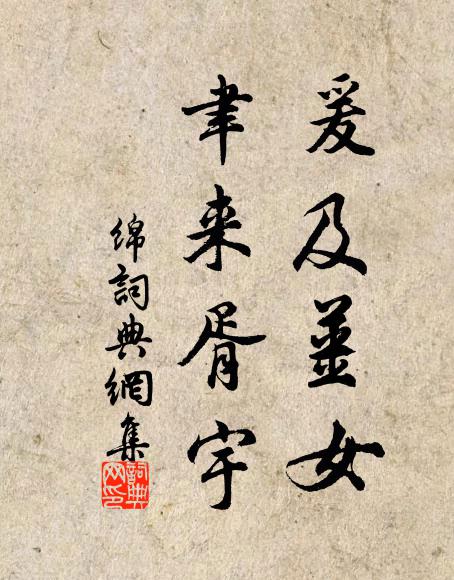 爰及薑女
聿来胥宇
绵詞典網集
詞典
网印